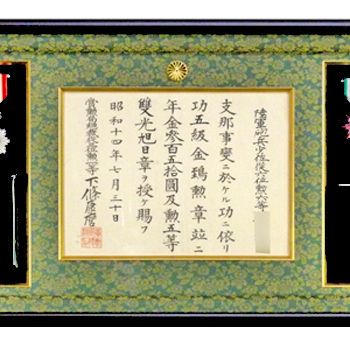 陸軍砲兵少佐従六位勲六等
支那事変ニ於ケル功ニ依リ
功五級金鵄勲章竝ニ
年金参百五拾圓及勲五等
雙光旭日章ヲ授ケ賜フ
昭和十四年七月三十日
賞勲局総裁従三位勲一等下條康麿